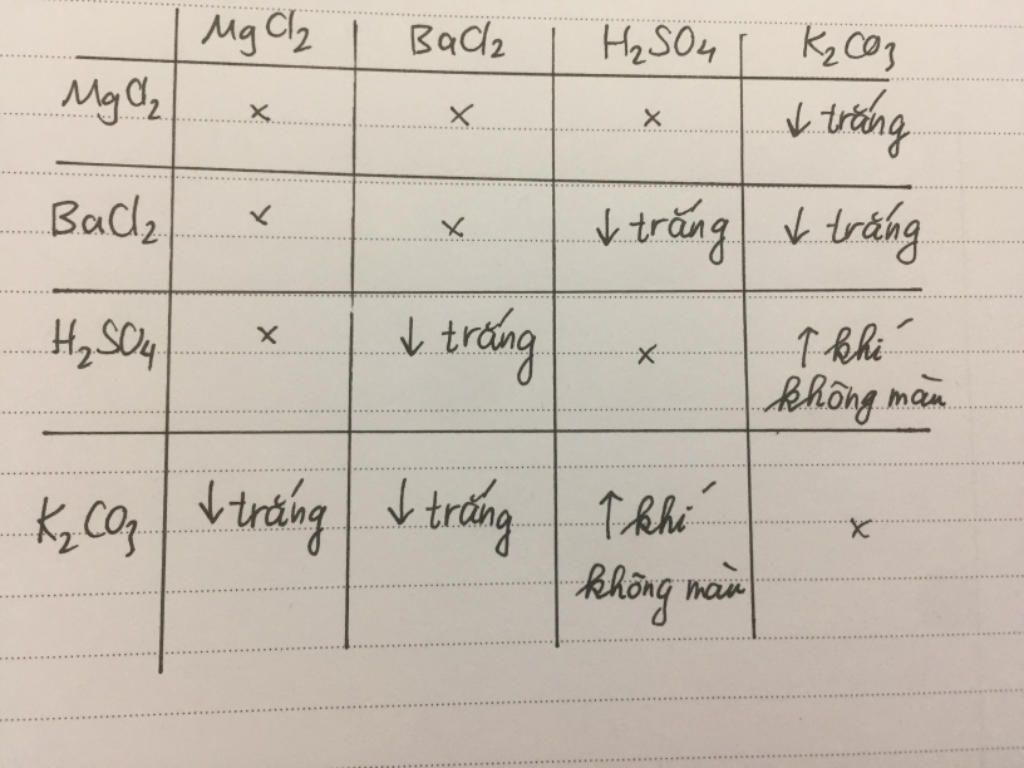 MgCl2 BaCl2 H2SO4 K2CO3
MgCl2 × × × ↓ trắng
BaCl2 × × ↓ trắng ↓ trắng
H2SO4 × ↓ trắng × ↑ khí
không màu
K2CO3 ↓ trắng ↓ trắng ↑ khí ×
không màu